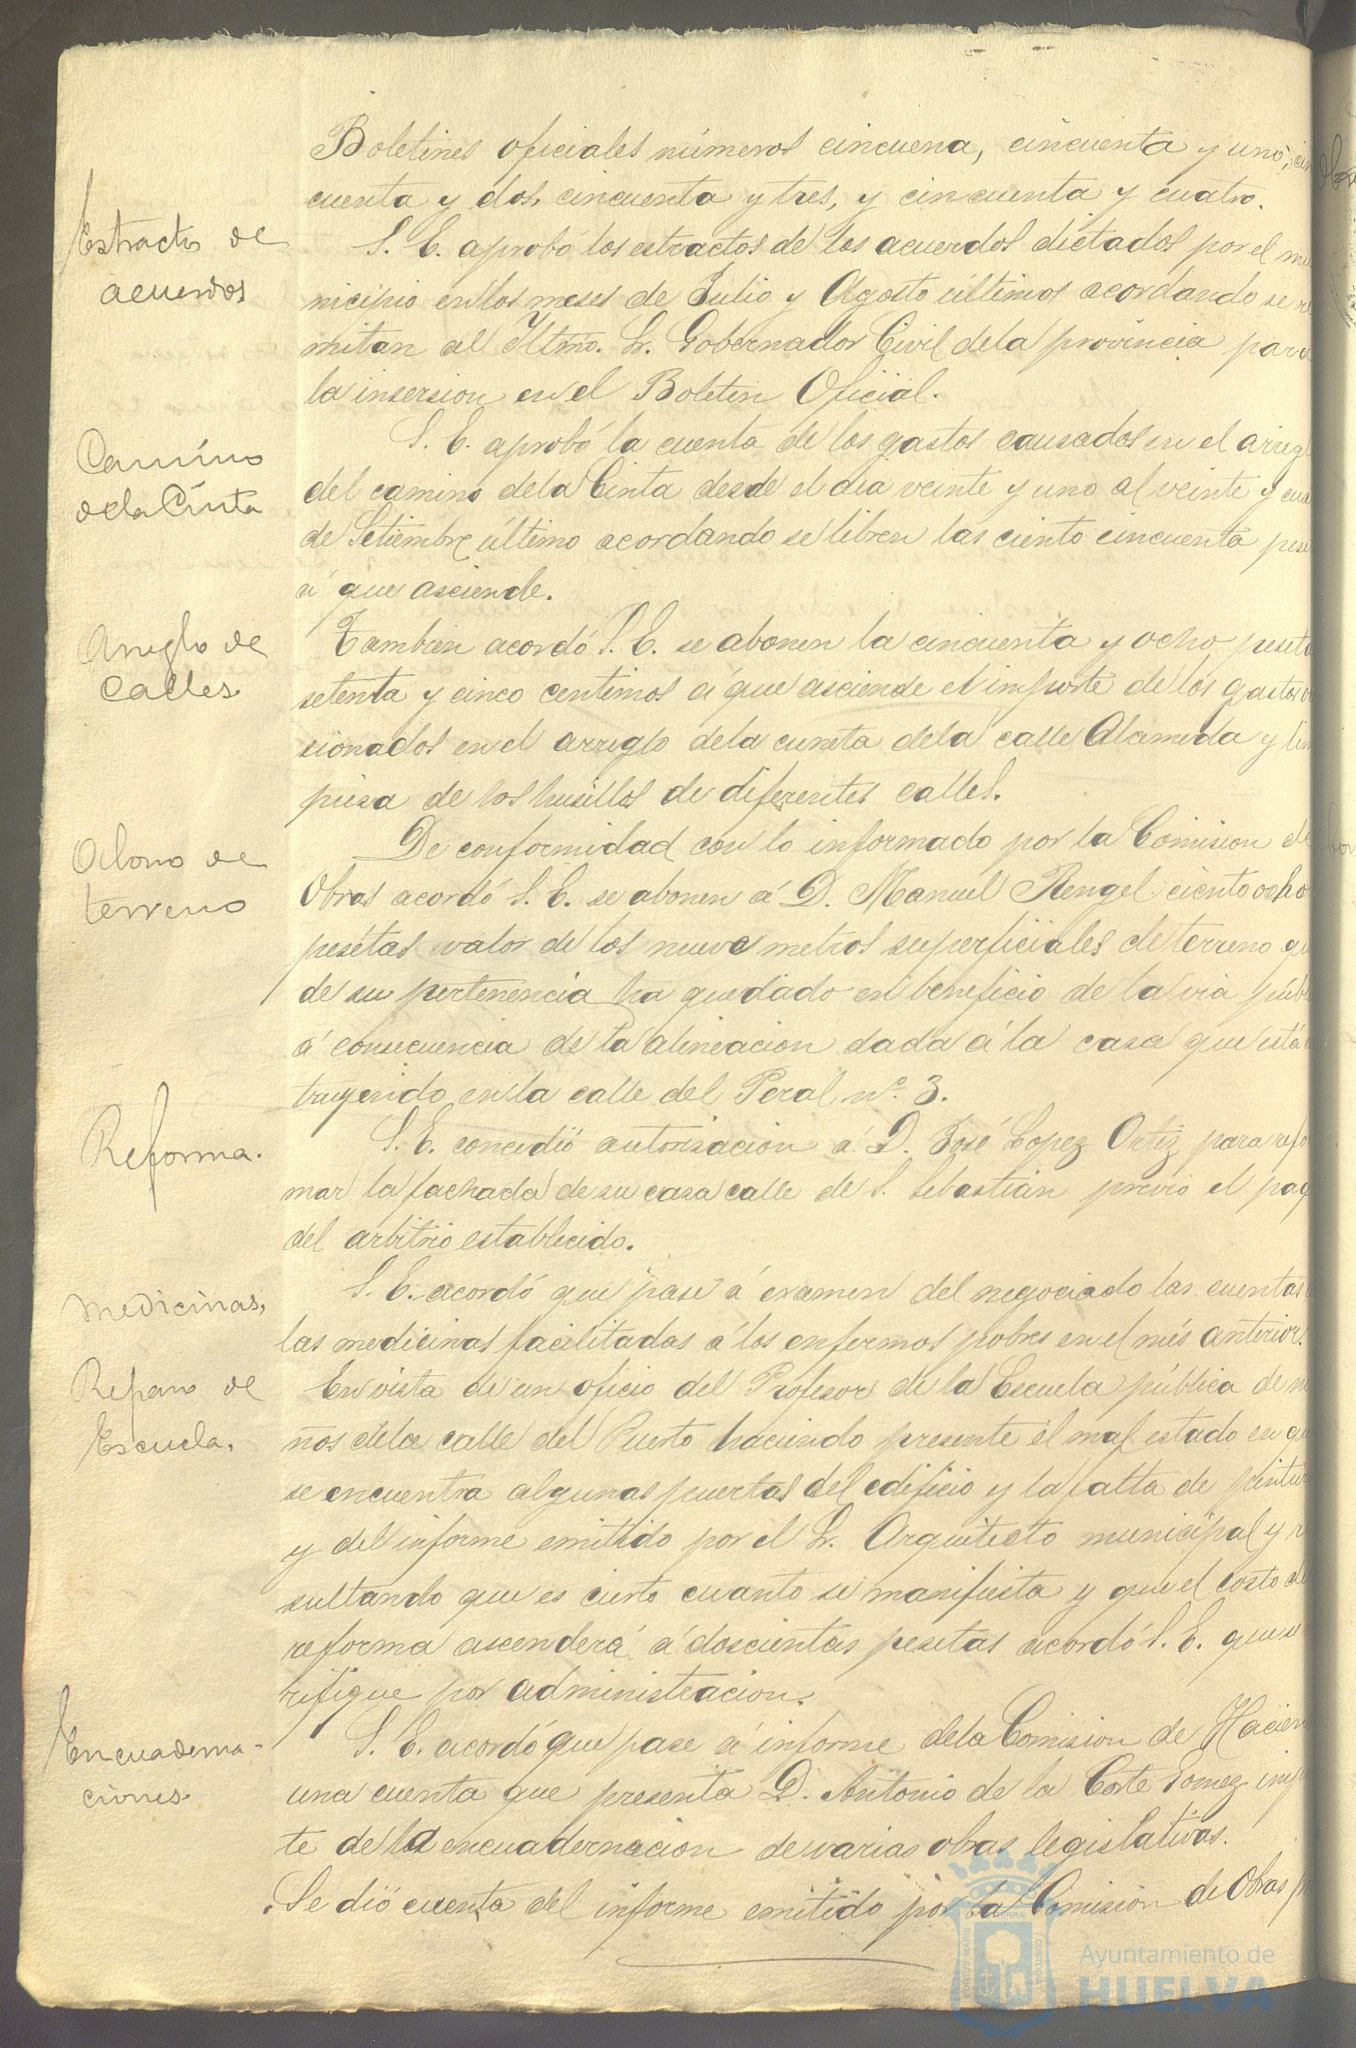 Boletines oficiales números cincuena, cincuenta y uno, cin
cuenta y dos, cincuenta y tres, y cincuenta y cuatro.
Estractos de
acuerdos
S. E. aprobó los estractos de los acuerdos dictados por el mu
nicipio en los meses de Julio y Agosto últimos acordando se re
mitan al Iltmo. Sr. Gobernador Civil dela provincia para
la insersion en el Boletin Oficial.
Camino
dela Cinta
S. E. aprobó la cuenta de los gastos causados en el arregl
del camino dela Cinta desde el dia veinte y uno al veinte y cua
de Setiembre último acordando se libren las ciento cincuenta pese
á que asciende.
Arreglo de
Calles
Tambien acordó S. E. se abonen la cincuenta y ocho peseta
setenta y cinco centimos á que asciende el importe de los gastos
sionados en el arreglo dela cuneta dela calle Alameda y lim
pieza de los husillos de diferentes calles.
Abono de
terreno
De conformidad con lo informado por la Comision de
Obras acordó S. E. se abonen á D. Manuel Rengel ciento ocho
pesetas valor de los nueve metros superficiales de terreno qu
de su pertenencia ha quedado en beneficio de la via públ
á consecuencia de la alineacion dada á la casa que está
truyendo en la calle del Peral nº. 3.
Reforma.
S. E. concedió autorizacion á D. José Lopez Ortiz para refo
mar la fachada de su casa calle de S. Sebastian previo el pag
del arbitrio establecido.
Medicinas.
S. E. acordó que pase á examen del negociado las cuentas
las medicinas facilitadas á los enfermos pobres en el més anterior.
Reparo de
Escuela.
En vista de un oficio del Profesor de la Escuela pública de ni
ños dela calle del Puerto haciendo presente el mal estado en qu
se encuentra algunas puertas del edificio y la falta de pintur
y del informe emitido por el Sr. Arquitecto municipal y re
sultando que es cierto cuanto se manifiesta y que el costo de
reforma ascenderá á doscientas pesetas acordó S. E. que se
rifique por administracion.
Encuaderna-
ciones.
S. E. acordó que pase á informe dela Comision de Hacien
una cuenta que presenta D. Antonio de la Corte Gomez imp
te de la encuadernacion de varias obras legislativas.
Se dió cuenta del informe emitido por la Comision de Obras
Ayuntamiento de
HUELVA